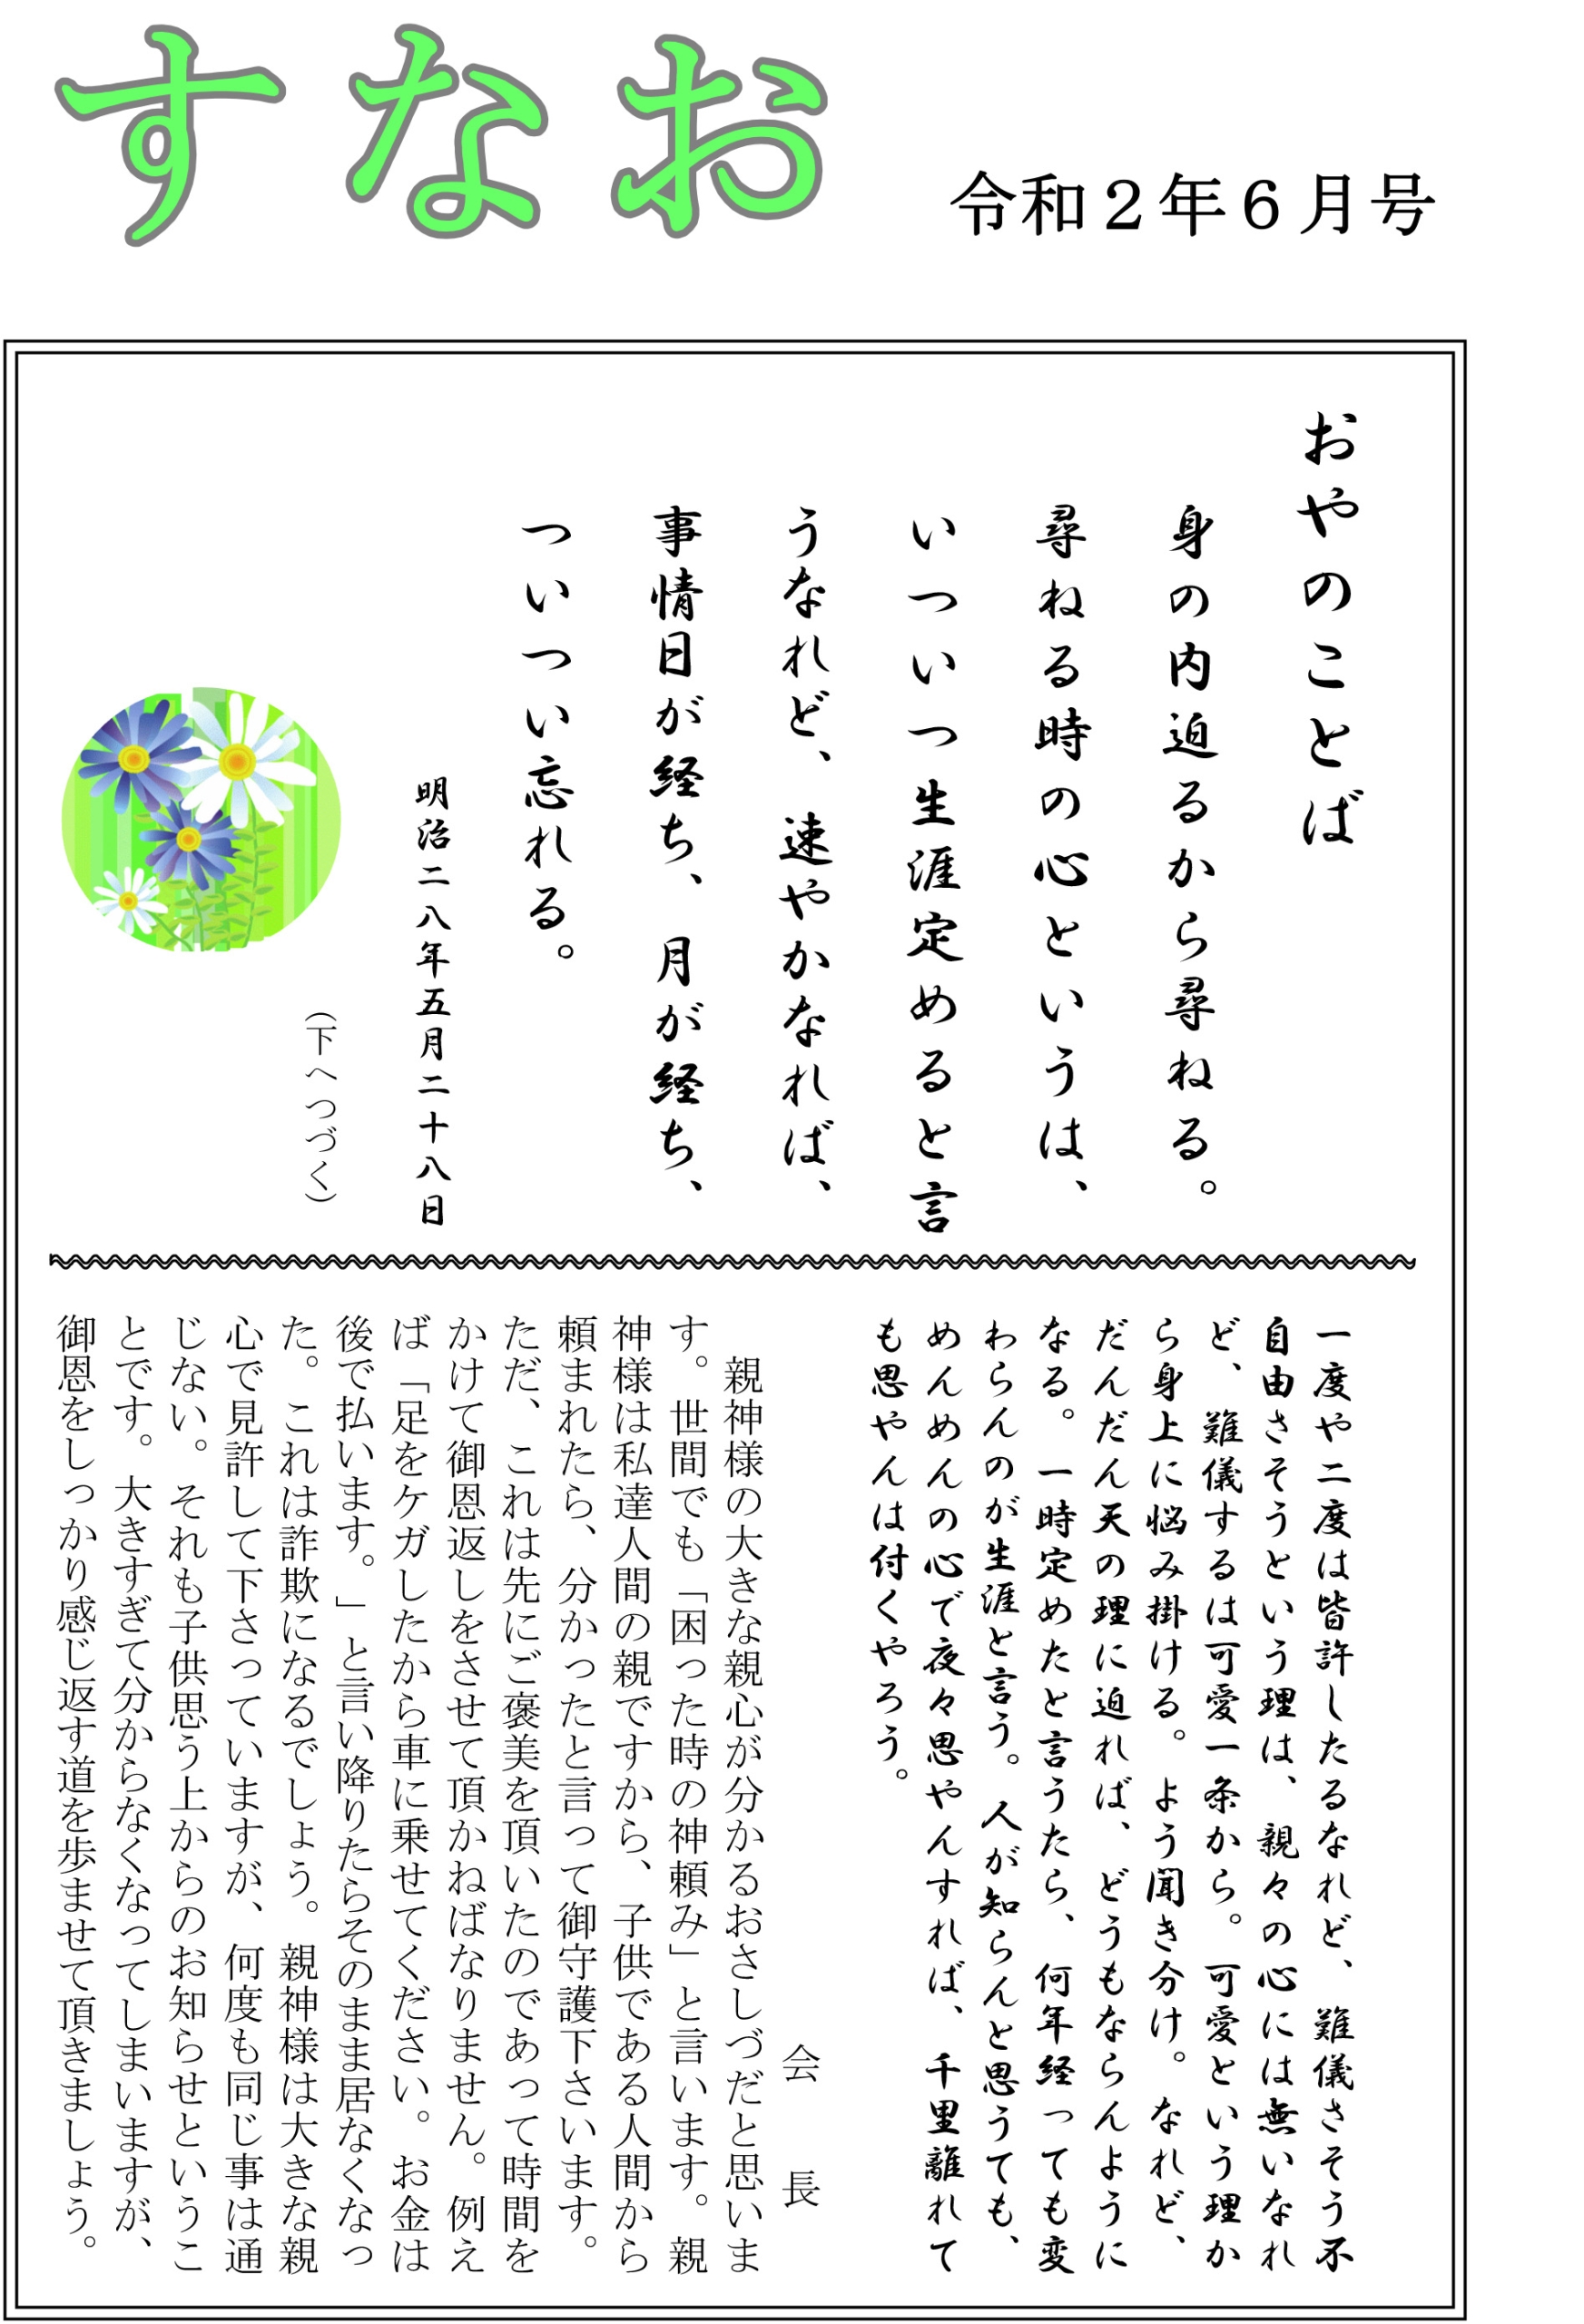 すなお
令和２年６月号
おやのことば
身の内迫るから尋ねる。
尋ねる時の心というは、
いついつ生涯定めると言
うなれど、速やかなれば、
事情日が経ち、月が経ち、
ついつい忘れる。
明治二八年五月二十八日
（下へつづく）
一度や二度は皆許したるなれど、難儀さそう不
自由さそうという理は、親々の心には無いなれ
ど、難儀するは可愛一条から。可愛という理か
ら身上に悩み掛ける。よう聞き分け。なれど、
だんだん天の理に迫れば、どうもならんように
なる。一時定めたと言うたら、何年経っても変
わらんのが生涯と言う。人が知らんと思うても、
めんめんの心で夜々思やんすれば、千里離れて
も思やんは付くやろう。
会長
親神様の大きな親心が分かるおさしづだと思いま
す。世間でも「困った時の神頼み」と言います。親
神様は私達人間の親ですから、子供である人間から
頼まれたら、分かったと言って御守護下さいます。
ただ、これは先にご褒美を頂いたのであって時間を
かけて御恩返しをさせて頂かねばなりません。例え
ば「足をケガしたから車に乗せてください。お金は
後で払います。」と言い降りたらそのまま居なくなっ
た。これは詐欺になるでしょう。親神様は大きな親
心で見許して下さっていますが、何度も同じ事は通
じない。それも子供思う上からのお知らせというこ
とです。大きすぎて分からなくなってしまいますが、
御恩をしっかり感じ返す道を歩ませて頂きましょう。